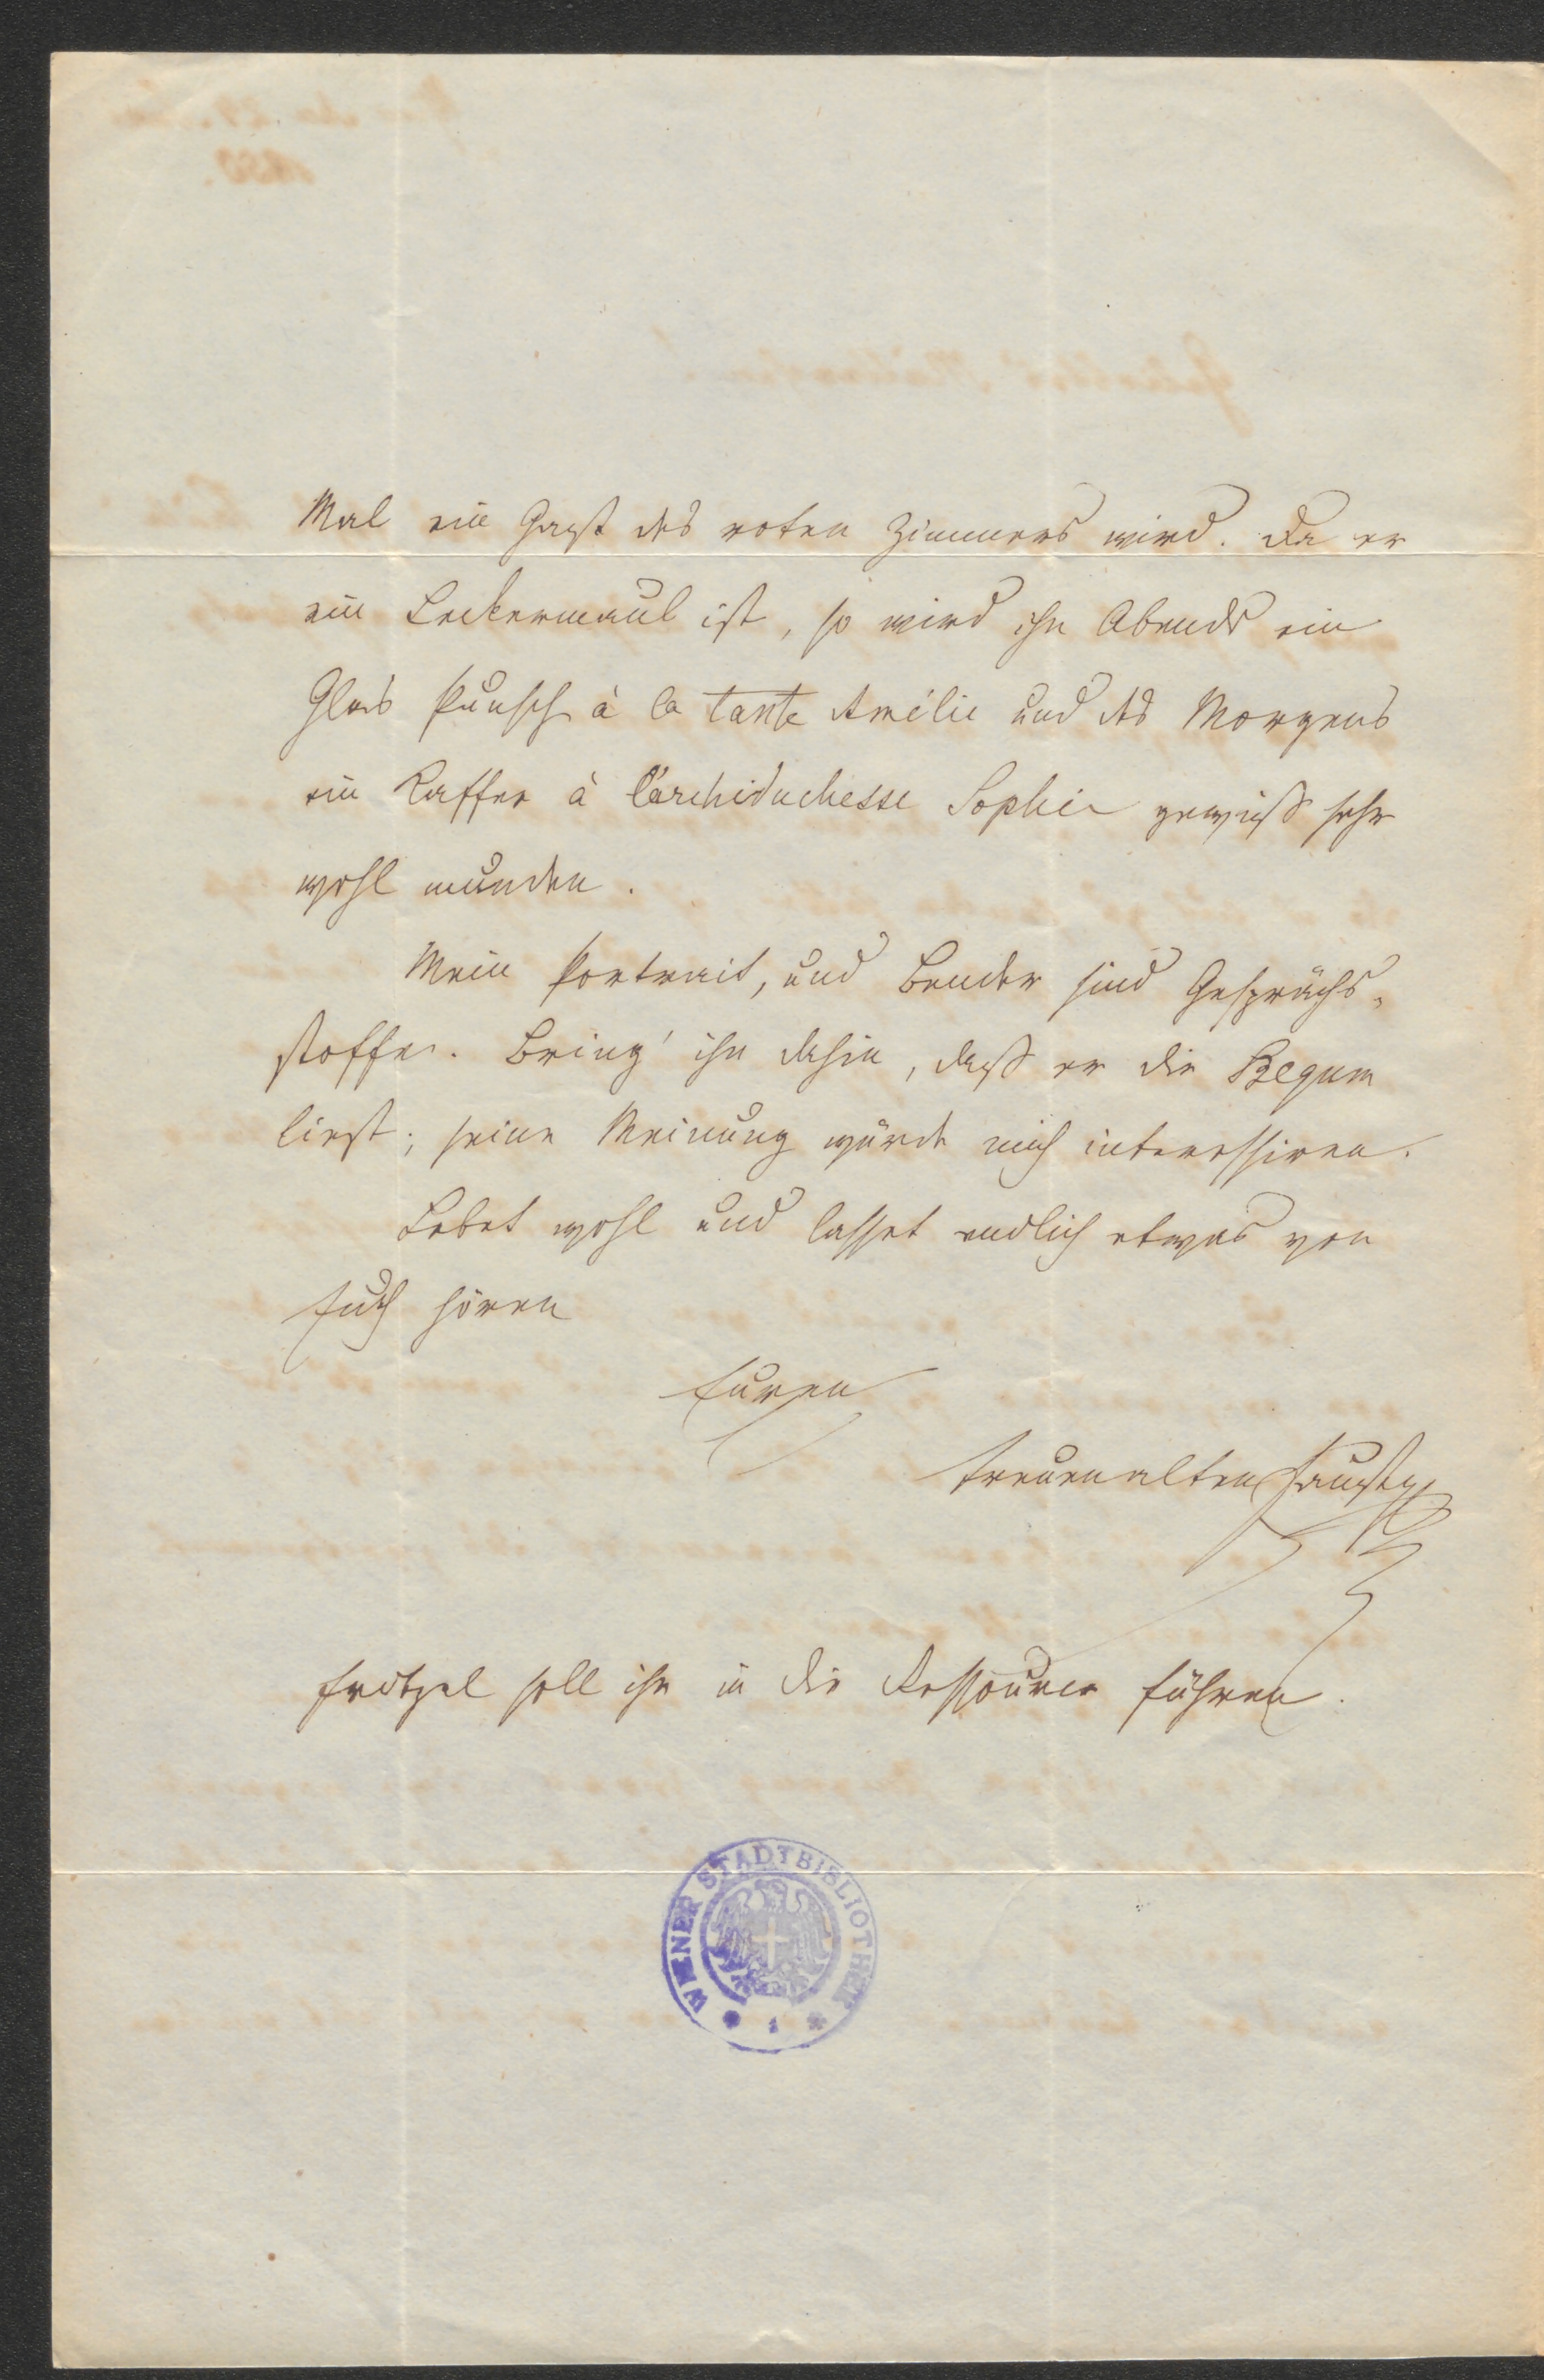 Mal ein Gast des roten Zimmers wird. Da er
ein Leckermaul ist, so wird ihn Abends ein
Glas Punsch à la tante Amélie und des Morgens
ein Kaffee à l'archiduchesse Sophie gewiß sehr
wohl munden.
Mein Portrait, und Bender sind Gesprächs-
stoffe. Bring' ihn dahin, daß er die Begum
liest; seine Meinung würde mich interessiren.
Lebet wohl und lasset endlich etwas von
Euch hören
Euren
treuen alten Faust
Fritzel soll ihn in die Ressource führen.
WIENER STADTBIBLIOTHEK